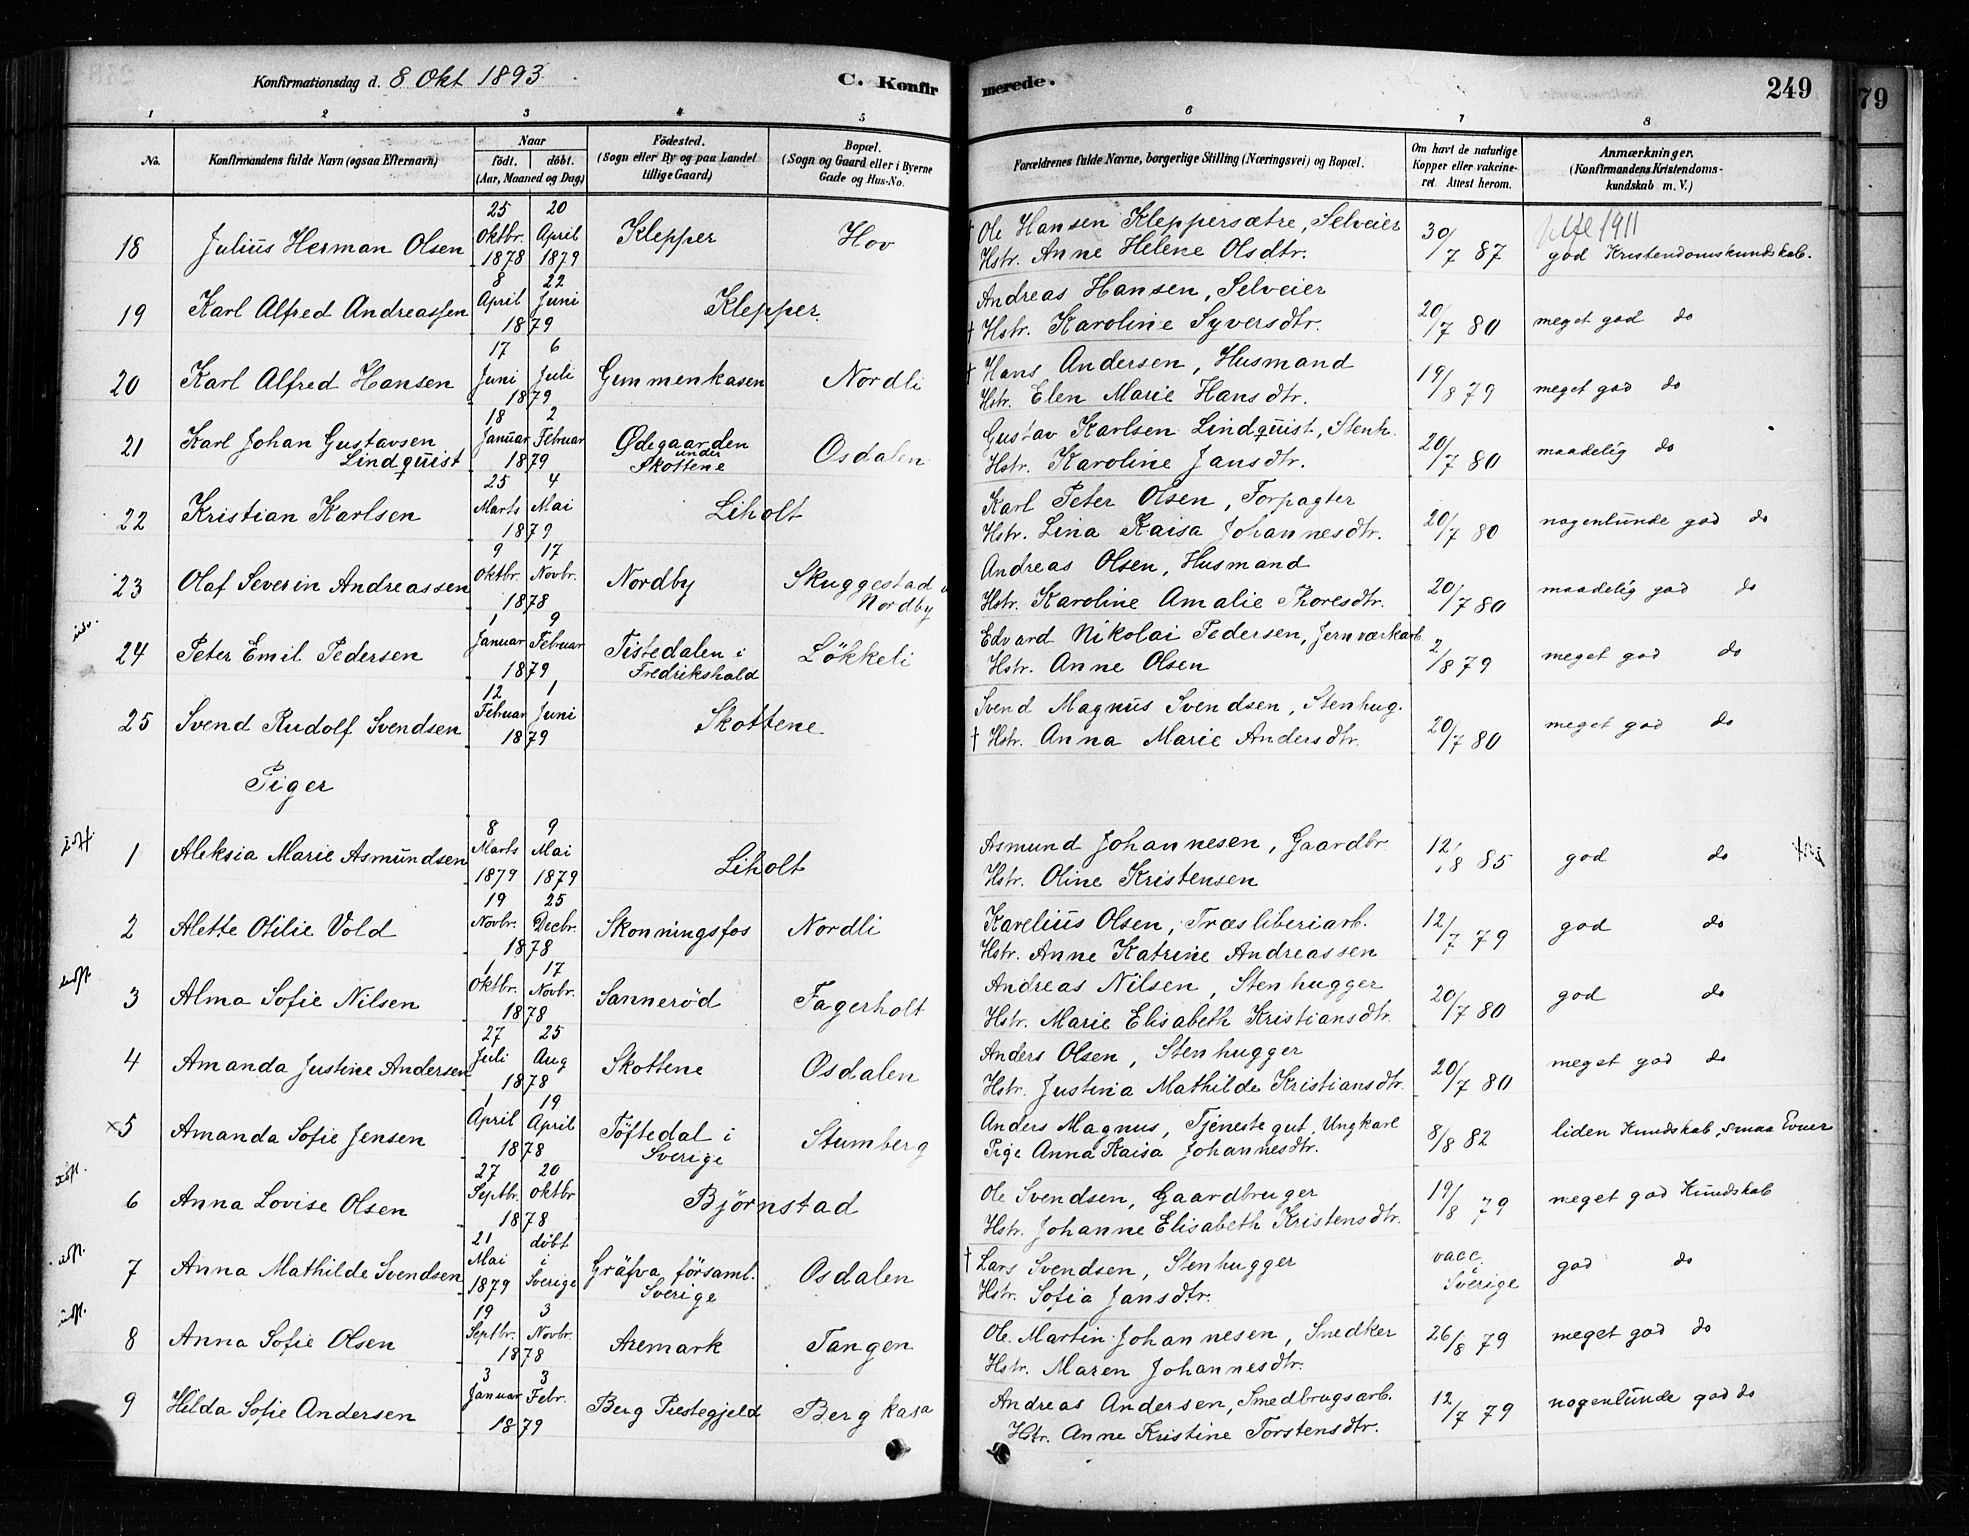 Konfirmationsdag d. 8 Okt 1893.
C. Konfirmerede.
249
79
1 2 3 4 5 6 7 8
No.
Konfirmandens fulde Navn (ogsaa Efternavn)
Naar
født. døbt.
(Aar, Maaned og Dag)
Fødested.
(Sogn eller By og paa Landet
tillige Gaard)
Bopæl.
(Sogn og Gaard eller i Byerne
Gade og Hus-No.
Forældrenes fulde Navne, borgerlige Stilling (Næringsvei) og Bopæl.
Om havt de naturlige
Kopper eller vakcine-
ret Attest herom.
Anmærkninger.
(Konfirmandens Kristendoms-
kundskab m. V.)
18 Julius Herman Olsen 25 Oktbr. 1878 20 April 1879 Klepper Hov
† Ole Hansen Kleppersætre, Selveier
Hstr. Anne Helene Olsdtr.
30/7 87 1911
god Kristendomskundskab.
19 Karl Alfred Andreassen 8 April 22 Juni 1879 Klepper.
Andreas Hansen, Selveier
† Hstr. Karoline Syversdtr.
20/7 80 meget god do
20 Karl Alfred Hansen 17 Juni 6 Juli 1879 Gummenkasen Nordli
† Hans Andersen, Husmand
Hstr. Elen Marie Hansdtr.
19/8 79 meget god do
21 Karl Johan Gustavsen
Lindquist 18 Januar 2 Februar 1879 Ødegaarden
under
Skottene Osdalen
Gustav Karlsen Lindquist, Stenh.
Hstr. Karoline Jansdtr.
20/7 80 maadelig do
22 Kristian Karlsen 25 Marts 4 Mai 1879 Liholt
Karl Peter Olsen, Forpagter
Hstr. Lina Kaisa Johannesdtr.
20/7 80 nogenlunde god do
23 Olaf Severin Andreassen 9 Oktbr. 17 Novbr. 1878 Nordby Skuggestad u
Nordby
Andreas Olsen, Husmand
Hstr. Karoline Amalie Thoresdtr.
20/7 80 maadelig god do
24 Peter Emil Pedersen 1 Januar 9 Februar 1879 Tistedalen i
Fredrikshald Løkkeli
Edvard Nikolai Pedersen, Jernværkarb
Hstr. Anne Olsen
2/8 79 meget god do
25 Svend Rudolf Svendsen 12 Februar 1 Juni 1879 Skottene
Svend Magnus Svendsen, Stenhug.
† Hstr. Anna Marie Andersdtr.
20/7 80 meget god do
Piger
1 Aleksia Marie Asmundsen 8 Marts 1879 9 Mai 1879 Liholt
Asmund Johannesen, Gaardbr
Hstr. Oline Kristensen
12/8 85 god do
2 Alette Otilie Vold 19 Novbr. 25 Decbr. 1878 Skonningsfos Nordli
Karelius Olsen, Træsliberiarb.
Hstr. Anne Katrine Andreassen
12/7 79 god do
3 Alma Sofie Nilsen 1 Oktbr. 17 Novbr. 1878 Sannerød Fagerholt
Andreas Nilsen, Stenhugger
Hstr. Marie Elisabeth Kristiansdtr.
20/7 80 god do
4 Amanda Justine Andersen 27 Juli 25 Aug 1878 Skottene Osdalen
Anders Olsen, Stenhugger
Hstr. Justina Mathilde Kristiansdtr.
20/7 80 meget god do
×5 Amanda Sofie Jensen 1 April 19 April 1878 Töftedal i
Sverige Stumberg
Anders Magnus, Tjenestegut, Ungkarl
Pige Anna Kaisa Johannesdtr.
8/8 82 liden Kundskab, smaa Evner
6 Anna Lovise Olsen 27 Septbr. 20 Oktbr 1878 Bjørnstad
Ole Svendsen, Gaardbruger
Hstr. Johanne Elisabeth Kristensdtr.
19/8 79 meget god Kundskab
7 Anna Mathilde Svendsen 21 Mai 1879 døbt i Sverige Gräfva församl.
Sverige Osdalen
† Lars Svendsen, Stenhugger
Hstr. Sofia Jansdtr.
vacc. i Sverige god do
8 Anna Sofie Olsen 19 Septbr. 3 Novbr. 1878 Aremark Tangen
Ole Martin Johannesen, Snedker
Hstr. Maren Johannesdtr.
26/8 79 meget god do
9 Hilda Sofie Andersen 3 Januar 3 Febr. 1879 Berg Prestegjeld Berg kasa
Andreas Andersen, Smedbrugsarb.
Hstr. Anne Kristine Torstensdtr.
12/7 79 nogenlunde god do